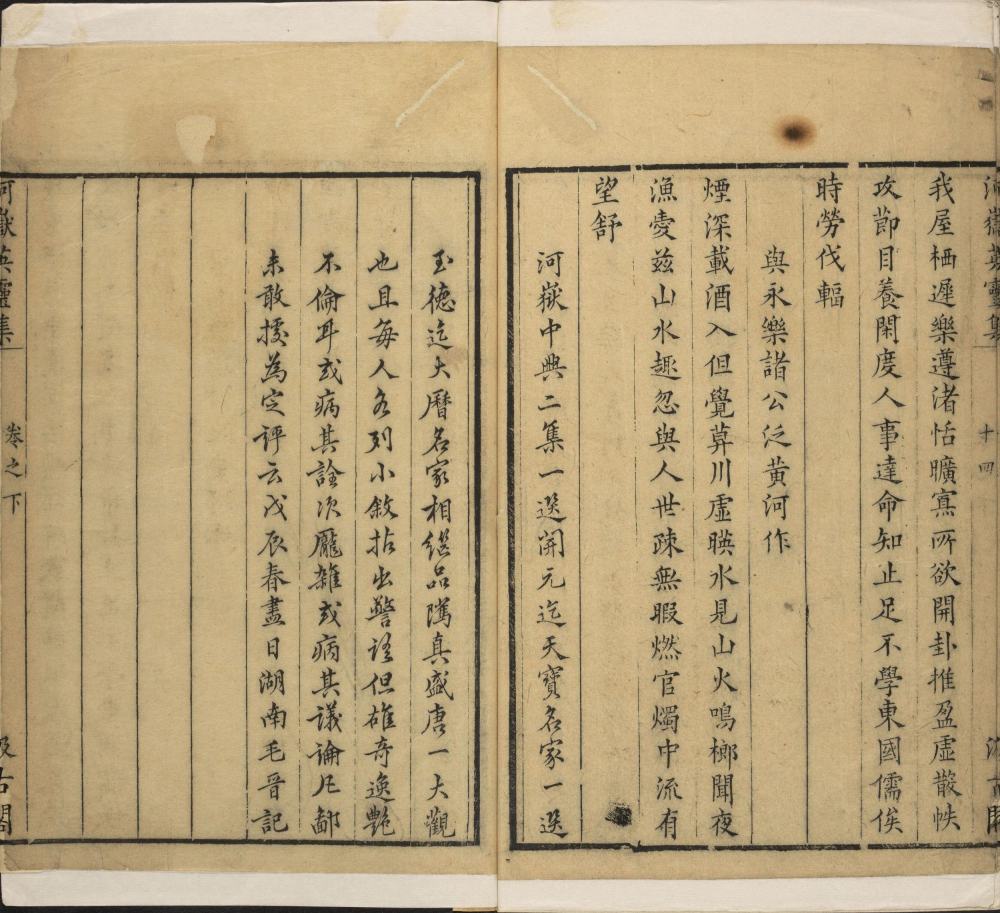 河嶽英靈集
十四
汲古閣
我屋栖遲樂遵渚恬曠寡所欲開卦推盈虛散帙
攻節目養閑度人事達命知止足不學東國儒俟
時勞伐輻
與永樂諸公泛黃河作
煙深載酒入但覺莫川虛暎水見山火鳴榔聞夜
漁愛茲山水趣忽與人世疎無暇燃官燭中流有
望舒
河嶽中興二集一選開元迄天寶名家一選
至德迄大曆名家相繼品隲真盛唐一大觀
也且每人各列小敘拈出警語但雄奇逸艷
不倫耳或病其詮次龐雜或病其議論凡鄙
未敢據為定評云戊辰春盡日湖南毛晉記
河嶽英靈集
卷之下
汲古閣